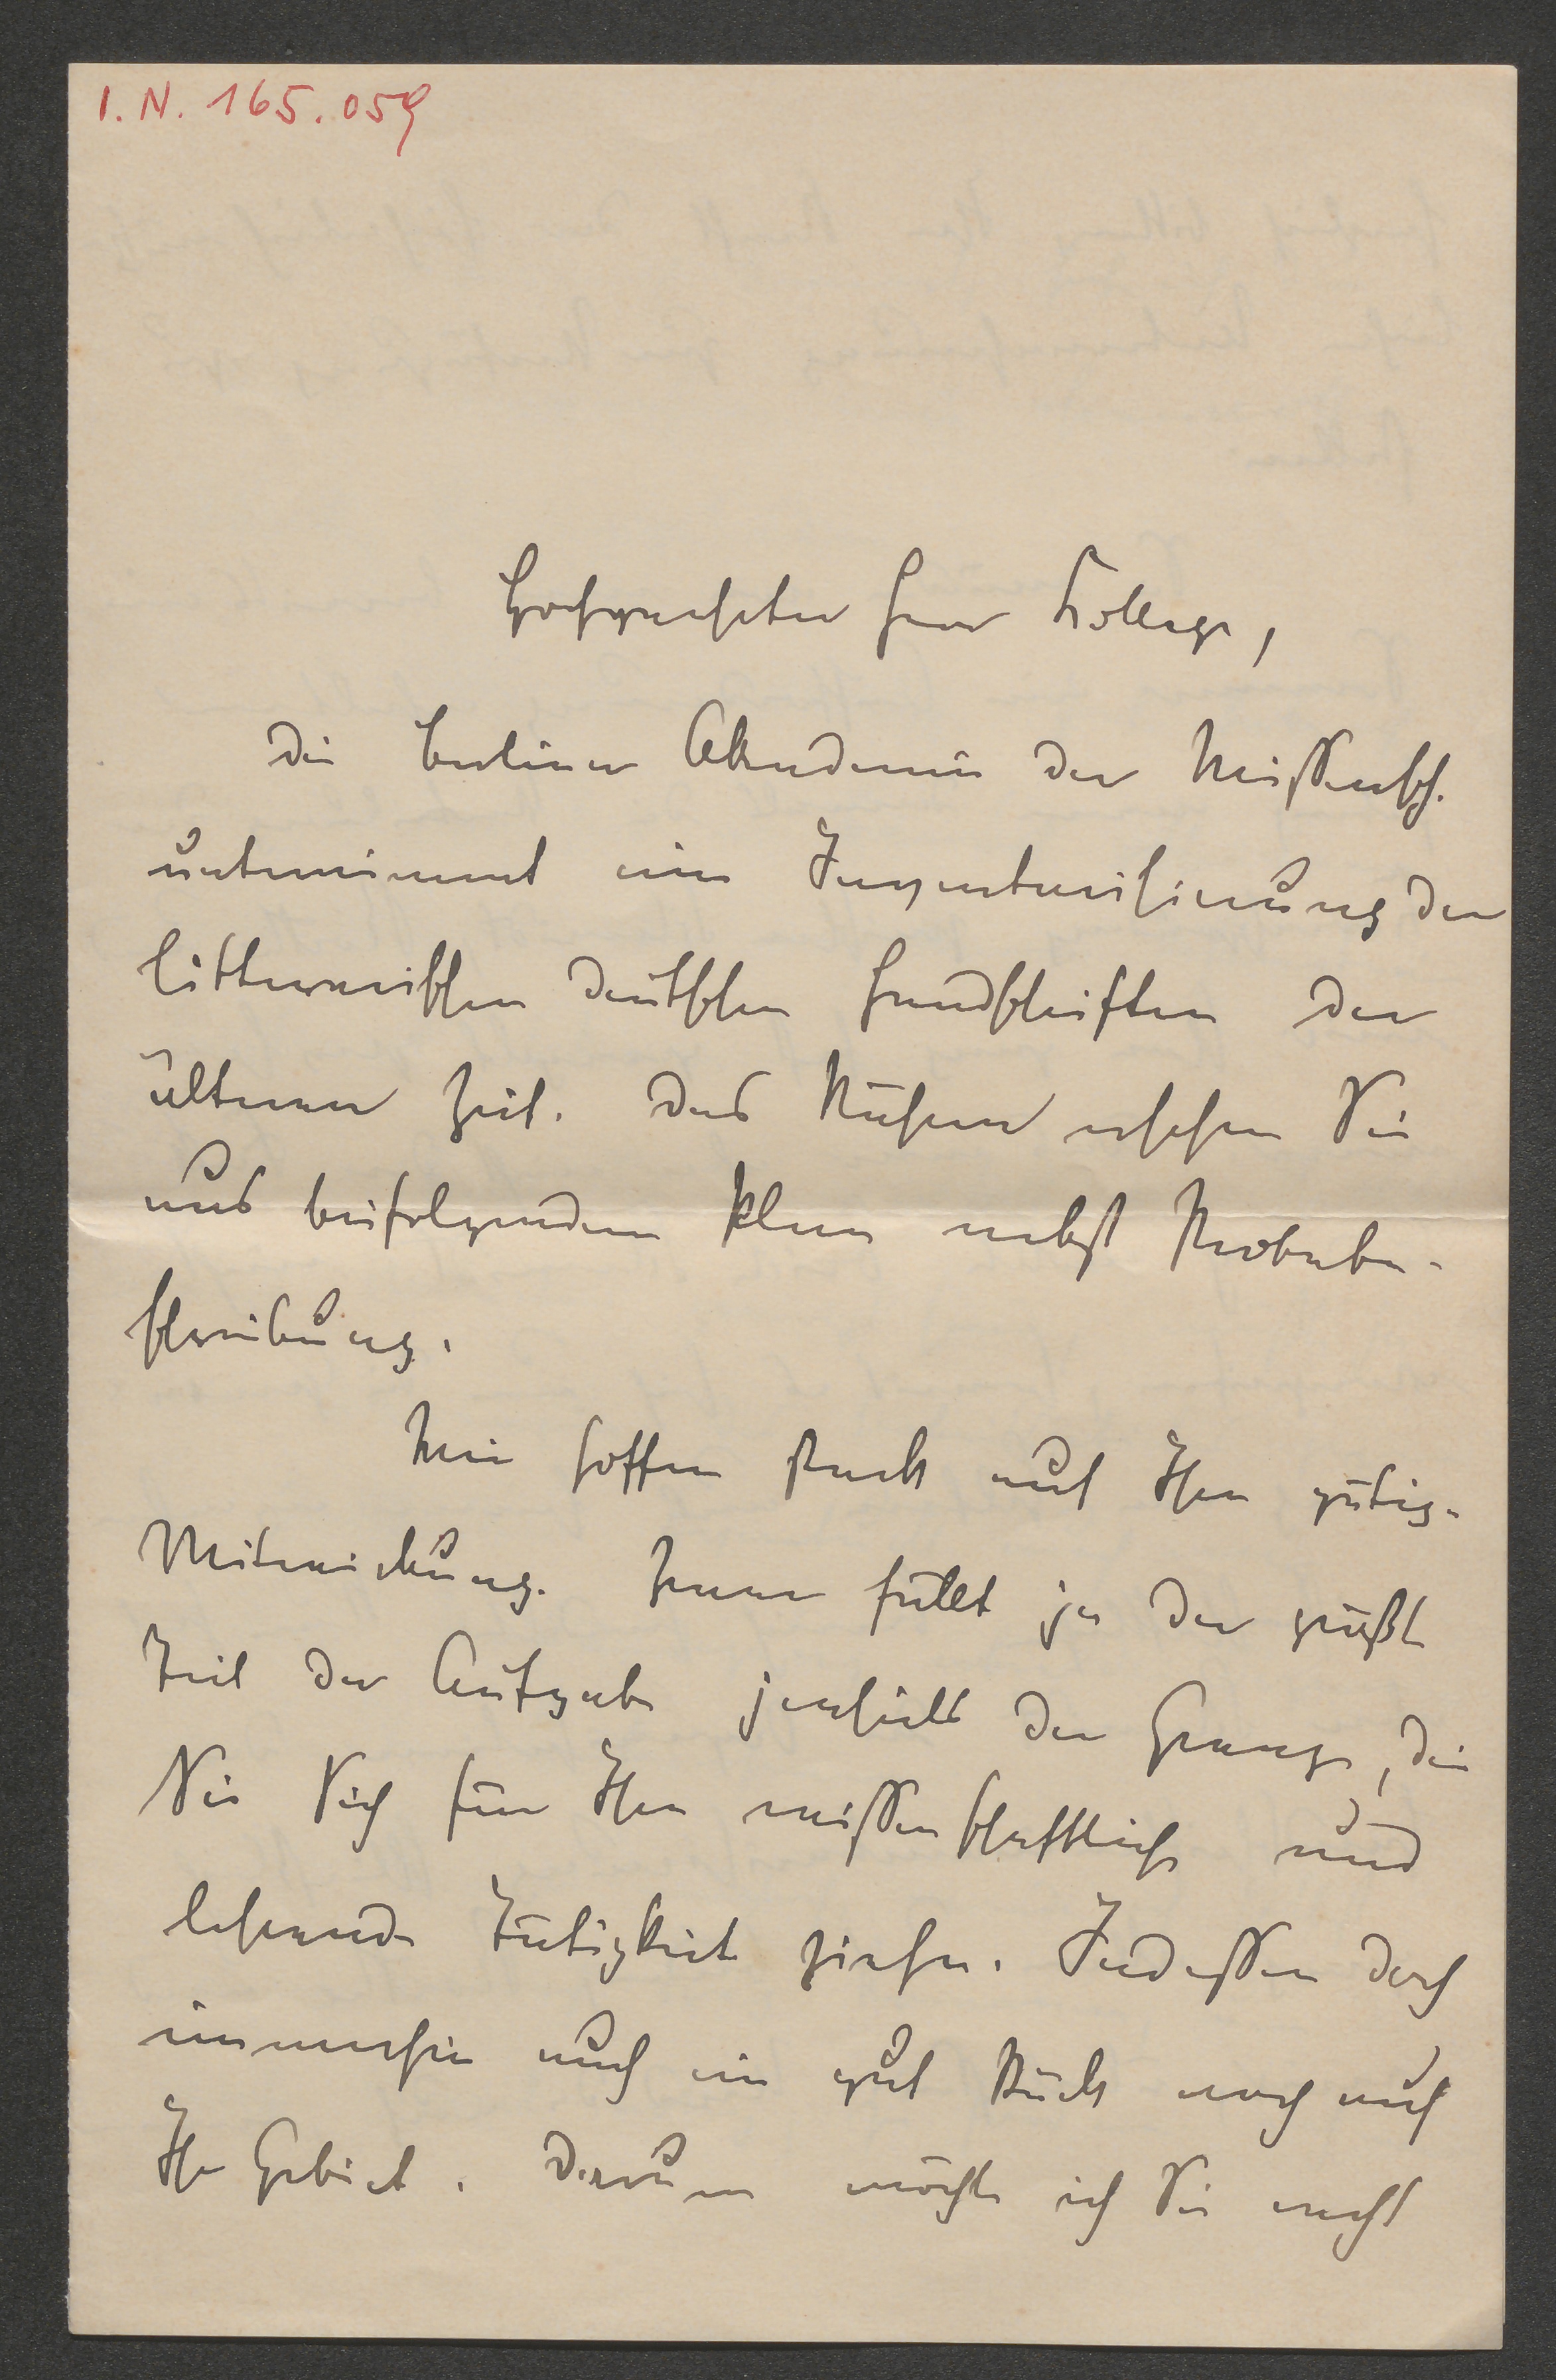 I. N. 165.059
Hochgeehrter Herr Kollege,
die Berliner Akademie der Wissensch.
unternimmt eine Inventarisierung der
litterarischen deutschen Handschriften der
älteren Zeit. Das Nähere ersehen Sie
aus beifolgendem Plan nebst Probebe-
schreibung.
Wir hoffen stark auf Ihre gütige
Mitwirkung. Zwar fällt ja der größte
Teil der Aufgabe jenseits der Grenze, die
Sie Sich für Ihre wissenschaftliche und
lehrende Tätigkeit ziehen. Indessen doch
immerhin auch ein gut Stück noch auf
Ihr Gebiet. Darum möchte ich Sie recht